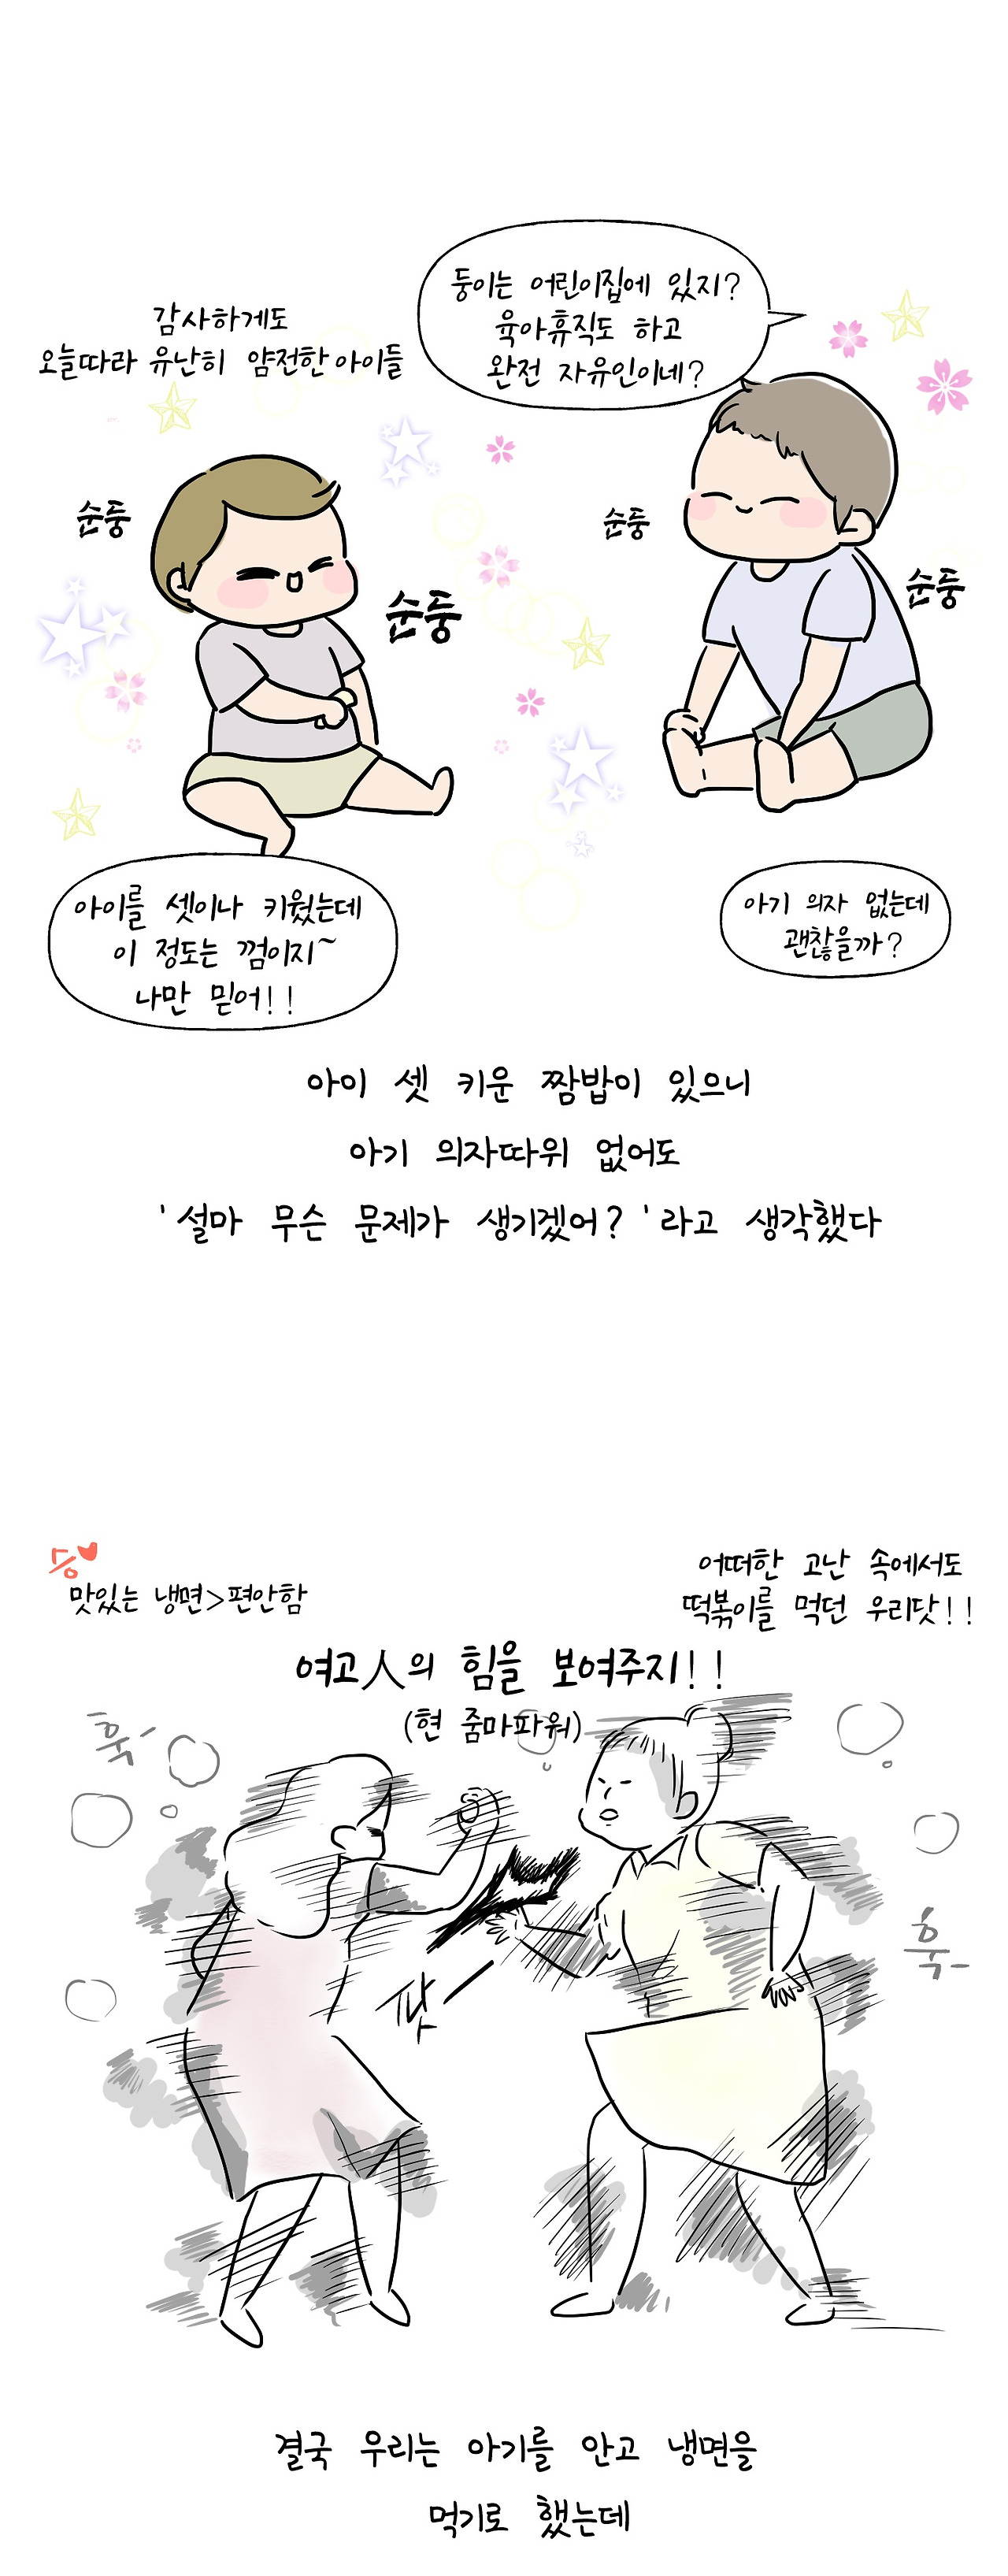 둥이는 어린이집에 있지?
육아휴직도 하고
완전 자유인이네?
감사하게도
오늘따라 유난히 얌전한 아이들
순둥
순둥
순둥
순둥
아이를 셋이나 키웠는데
이 정도는 껌이지~
나만 믿어!!
아기 의자 없는데
괜찮을까?
아이 셋 키운 짬밥이 있으니
아기 의자따위 없어도
'설마 무슨 문제가 생기겠어?'라고 생각했다
맛있는 냉면>편안함
어떠한 고난 속에서도
떡볶이를 먹던 우리닷!!
여고人의 힘을 보여주지!!
(현 줌마파워)
훅-
훅-
팟
결국 우리는 아기를 안고 냉면을
먹기로 했는데